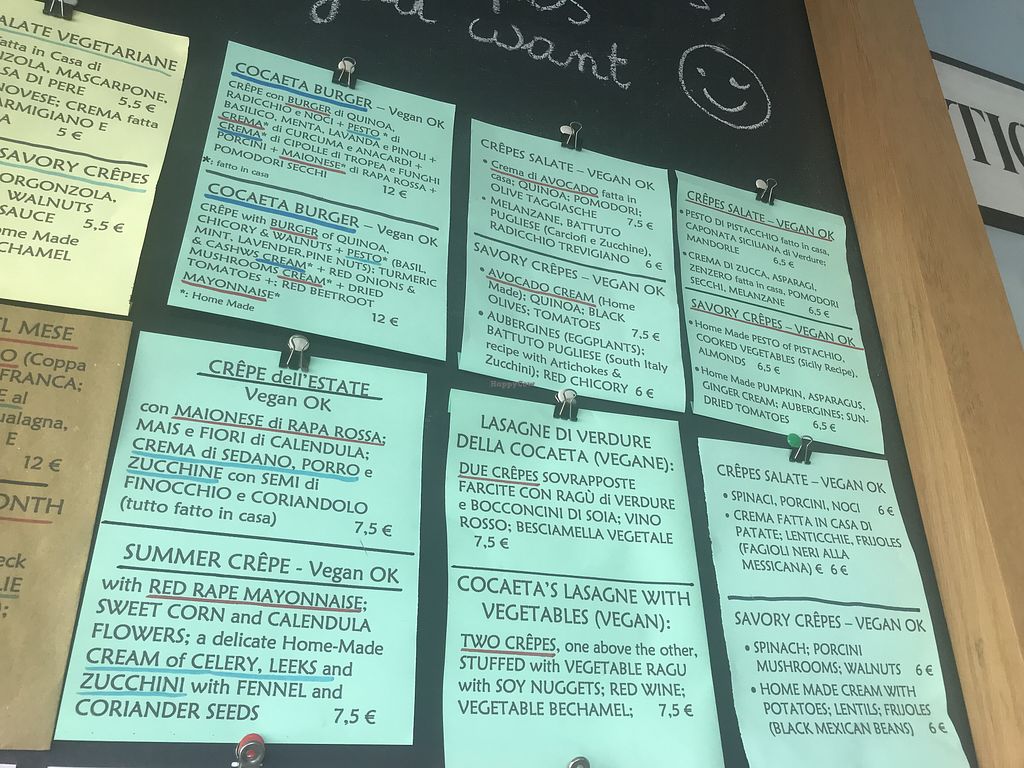 want
TIC
ALATE VEGETARIANE
fatta in Casa di
NZOLA, MASCARPONE,
SA DI PERE 5,5 €
NOVESE; CREMA fatta
ARMIGIANO E
A 5 €
SAVORY CRÊPES
ORGONZOLA,
WALNUTS
SAUCE 5,5 €
ome Made
CHAMEL
EL MESE
O (Coppa
FRANCA;
E al
ualagna,
E
12 €
ONTH
eck
LIE
COCAETA BURGER – Vegan OK
CRÊPE con BURGER di QUINOA,
RADICCHIO e NOCI + PESTO* di
BASILICO, MENTA, LAVANDA e PINOLI +
CREMA* di CURCUMA e ANACARDI +
CREMA* di CIPOLLE di TROPEA e FUNGHI
PORCINI + MAIONESE* di RAPA ROSSA +
POMODORI SECCHI 12 €
*: fatto in casa
COCAETA BURGER – Vegan OK
CRÊPE with BURGER of QUINOA,
CHICORY & WALNUTS + PESTO* (BASIL,
MINT, LAVENDER,PINE NUTS); TURMERIC
& CASHEWS CREAM* + RED ONIONS &
MUSHROOMS CREAM* + DRIED
TOMATOES +; RED BEETROOT
MAYONNAISE*
*: Home Made 12 €
CRÊPES SALATE – VEGAN OK
• Crema di AVOCADO fatta in
casa; QUINOA; POMODORI;
OLIVE TAGGIASCHE 7,5 €
• MELANZANE, BATTUTO
PUGLIESE (Carciofi e Zucchine),
RADICCHIO TREVIGIANO 6 €
SAVORY CRÊPES – VEGAN OK
• AVOCADO CREAM (Home
Made); QUINOA; BLACK
OLIVES; TOMATOES 7,5 €
• AUBERGINES (EGGPLANTS);
BATTUTO PUGLIESE (South Italy
recipe with Artichokes &
Zucchini); RED CHICORY 6 €
CRÊPES SALATE – VEGAN OK
• PESTO DI PISTACCHIO fatto in casa,
CAPONATA SICILIANA di Verdure;
MANDORLE 6,5 €
• CREMA DI ZUCCA, ASPARAGI,
ZENZERO fatta in casa, POMODORI
SECCHI, MELANZANE 6,5 €
SAVORY CRÊPES – VEGAN OK
• Home Made PESTO of PISTACHIO,
COOKED VEGETABLES (Sicily Recipe),
ALMONDS 6,5 €
• Home Made PUMPKIN, ASPARAGUS,
GINGER CREAM; AUBERGINES; SUN-
DRIED TOMATOES 6,5 €
CRÊPE dell'ESTATE
Vegan OK
con MAIONESE di RAPA ROSSA;
MAIS e FIORI di CALENDULA;
CREMA di SEDANO, PORRO e
ZUCCHINE con SEMI di
FINOCCHIO e CORIANDOLO
(tutto fatto in casa) 7,5 €
SUMMER CRÊPE - Vegan OK
with RED RAPE MAYONNAISE;
SWEET CORN and CALENDULA
FLOWERS; a delicate Home-Made
CREAM of CELERY, LEEKS and
ZUCCHINI with FENNEL and
CORIANDER SEEDS 7,5 €
LASAGNE DI VERDURE
DELLA COCAETA (VEGANE):
DUE CRÊPES SOVRAPPOSTE
FARCITE CON RAGÙ di VERDURE
e BOCCONCINI DI SOIA; VINO
ROSSO; BESCIAMELLA VEGETALE
7,5 €
COCAETA'S LASAGNE WITH
VEGETABLES (VEGAN):
TWO CRÊPES, one above the other,
STUFFED with VEGETABLE RAGU
with SOY NUGGETS; RED WINE;
VEGETABLE BECHAMEL; 7,5 €
CRÊPES SALATE – VEGAN OK
• SPINACI, PORCINI, NOCI 6 €
• CREMA FATTA IN CASA DI
PATATE; LENTICCHIE, FRIJOLES
(FAGIOLI NERI ALLA
MESSICANA) € 6 €
SAVORY CRÊPES – VEGAN OK
• SPINACH; PORCINI
MUSHROOMS; WALNUTS 6 €
• HOME MADE CREAM WITH
POTATOES; LENTILS; FRIJOLES
(BLACK MEXICAN BEANS) 6 €
HappyCow